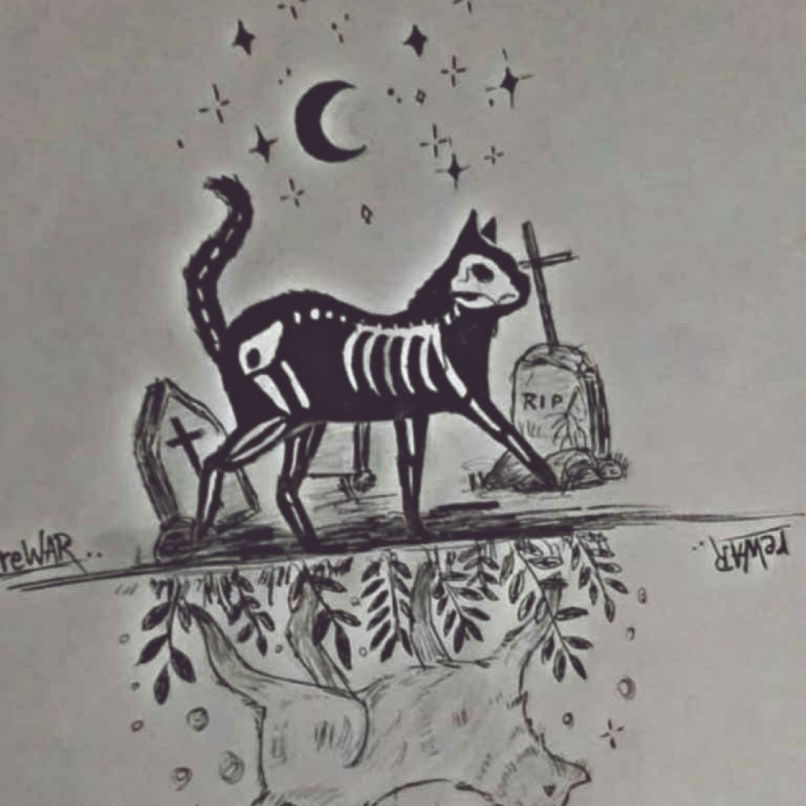 RIP
reWAR..
reWAR..